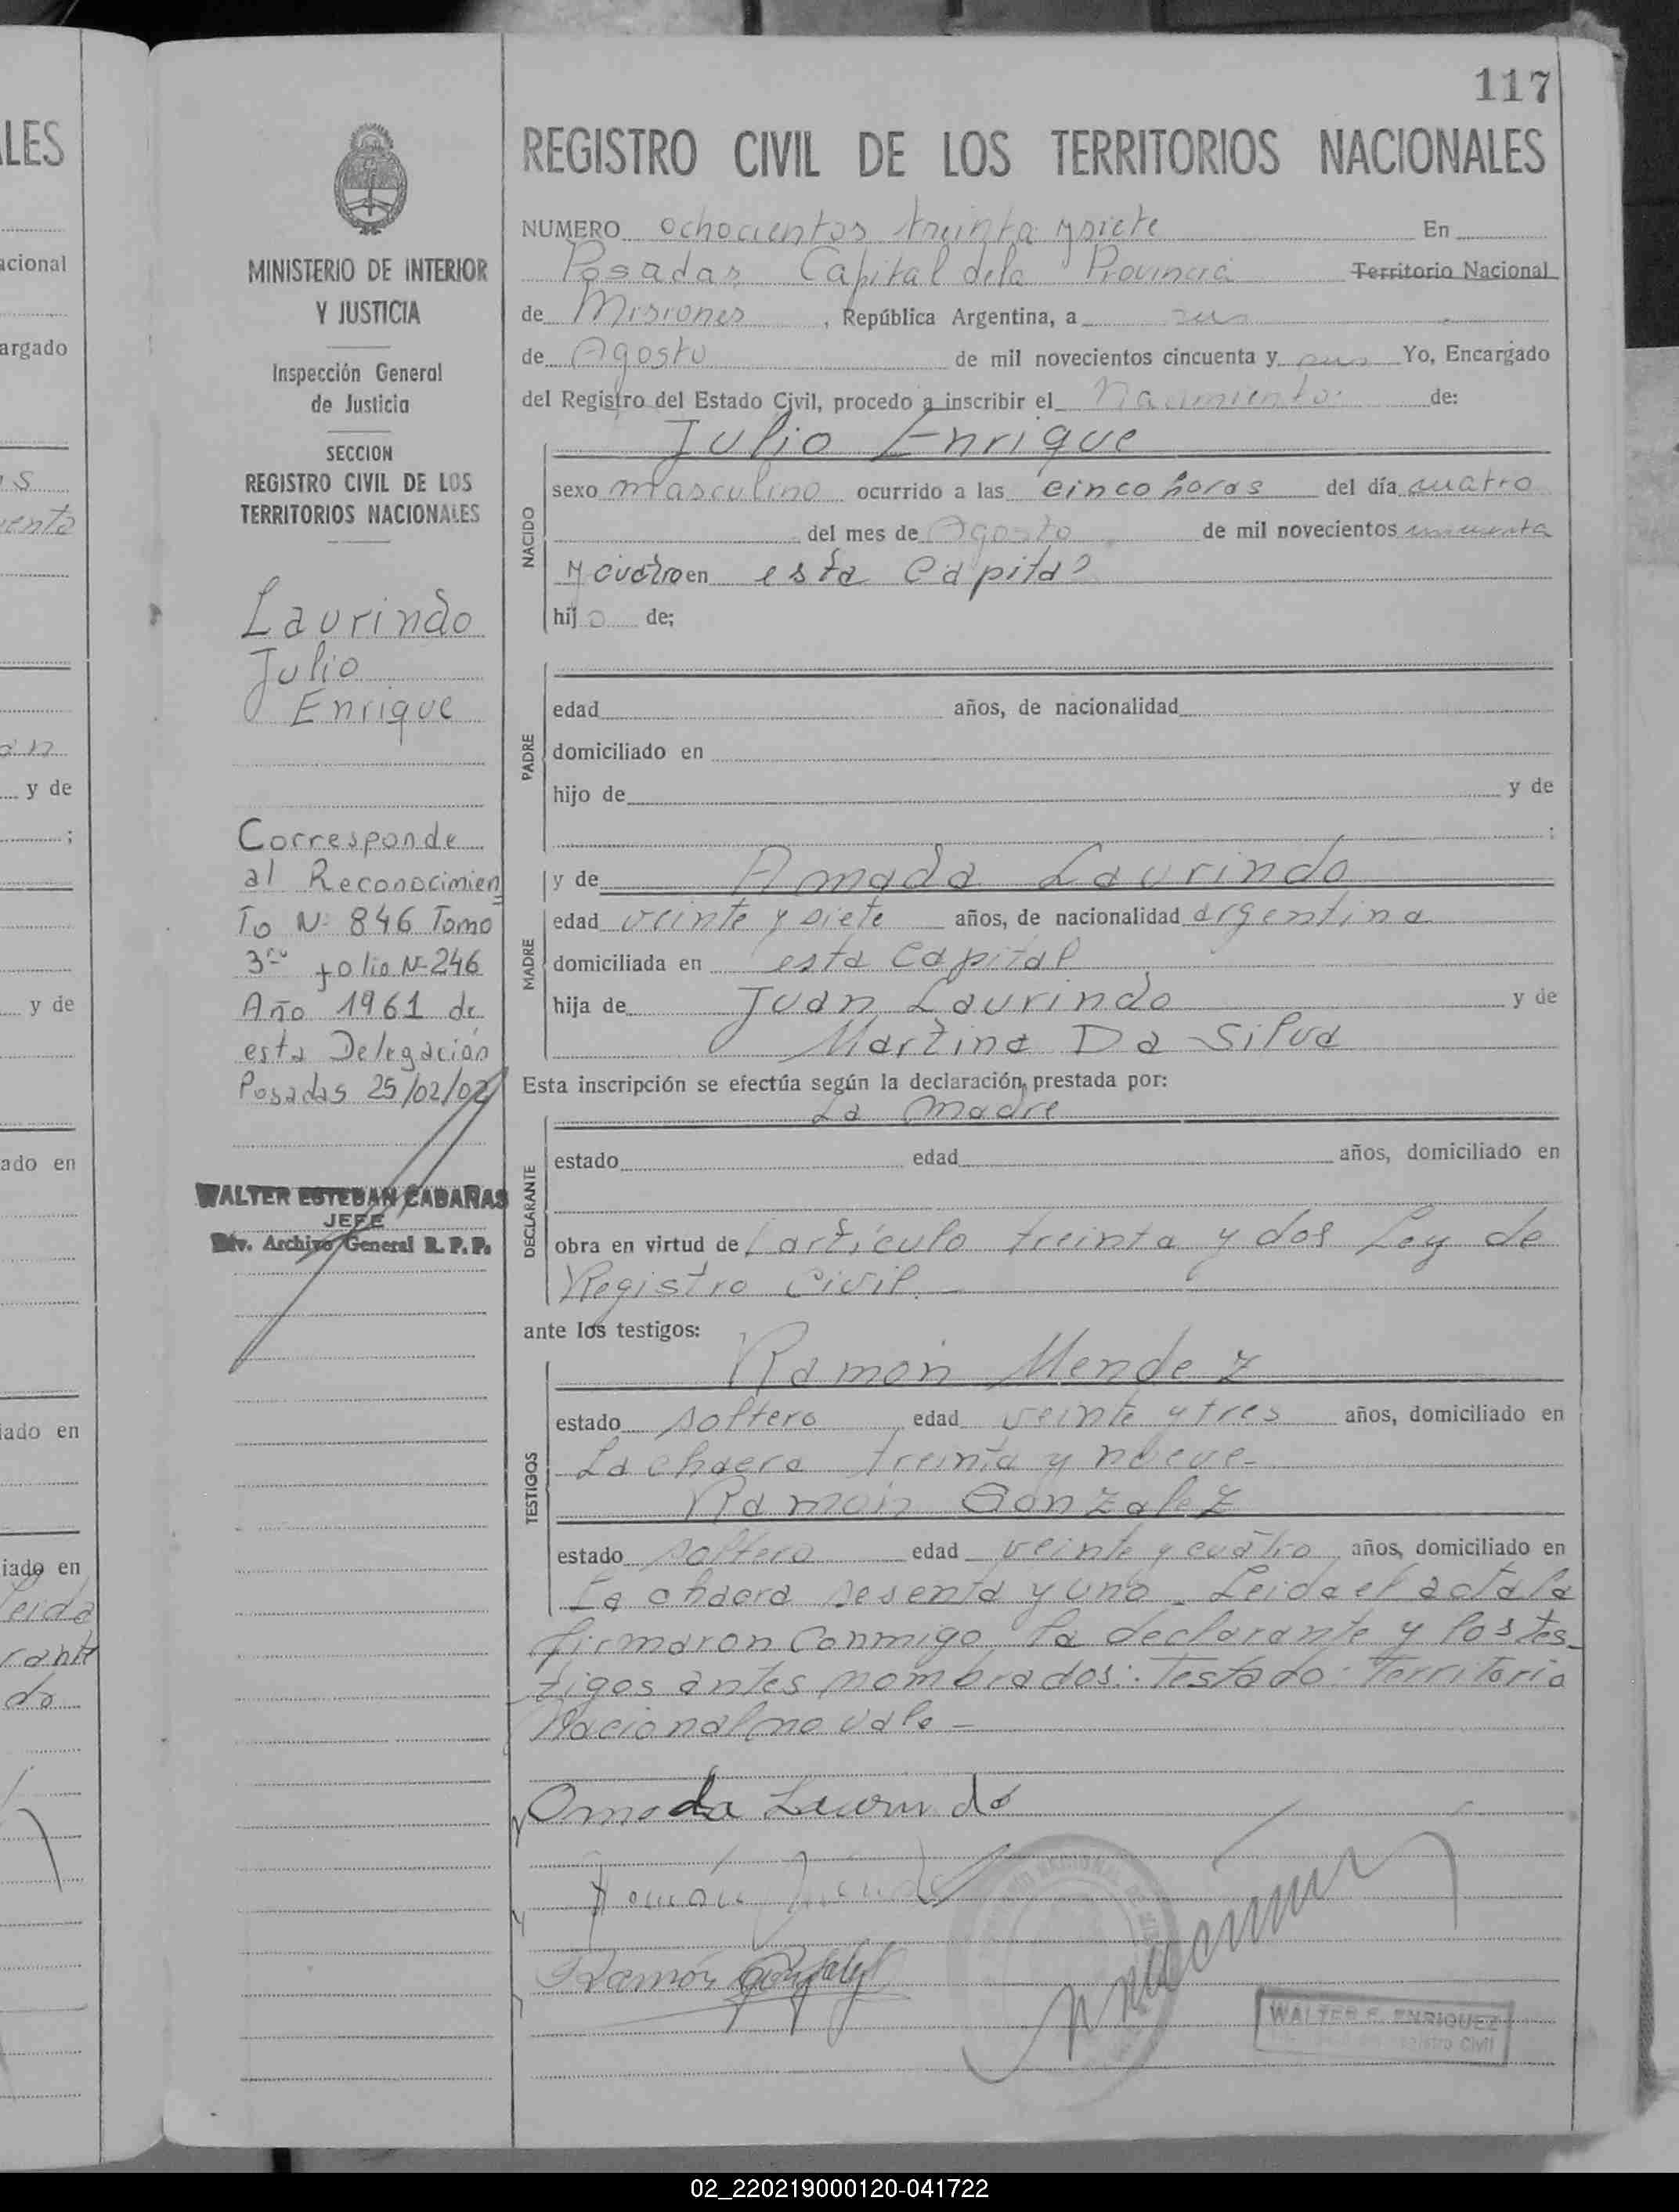 117
LES
REGISTRO CIVIL DE LOS TERRITORIOS NACIONALES
NUMERO ochocientos treinta y siete En
Posadas Capital de la Provincia Territorio Nacional
de Misiones, República Argentina, a seis
de Agosto de mil novecientos cincuenta y seis Yo, Encargado
del Registro del Estado Civil, procedo a inscribir el Nacimiento de:
MINISTERIO DE INTERIOR
Y JUSTICIA
Inspección General
de Justicia
SECCION
REGISTRO CIVIL DE LOS
TERRITORIOS NACIONALES
Laurindo
Julio
Enrique
Corresponde
al Reconocimien
to Nº 846 Tomo
3ro folio Nº 246
Año 1961 de
esta Delegación
Posadas 25/02/02
WALTER ESTEBAN CABAÑAS
JEFE
Div. Archivo General R. P. P.
NACIDO
Julio Enrique
sexo masculino ocurrido a las cinco horas del día cuatro
del mes de Agosto de mil novecientos cincuenta
y cuatro en esta Capital
hijo de;
PADRE
edad años, de nacionalidad
domiciliado en
hijo de y de
;
MADRE
y de Amada Laurindo
edad veinte y siete años, de nacionalidad argentina
domiciliada en esta Capital
hija de Juan Laurindo y de
Martina Da Silva
Esta inscripción se efectúa según la declaración prestada por:
La madre
DECLARANTE
estado edad años, domiciliado en
obra en virtud del artículo treinta y dos Ley de
Registro Civil.
ante los testigos:
TESTIGOS
Ramón Mendez
estado soltero edad veinte y tres años, domiciliado en
La chacra treinta y nueve-
Ramón Gonzalez
estado soltero edad veinte y cuatro años, domiciliado en
La chacra sesenta y uno. Leida el acta la
firmaron conmigo la declarante y los tes-
tigos antes nombrados: Testado: Territorio
Nacional no vale -
Omada Laurindo
Ramón Gonzalez
WALTER E. ENRIQUEZ
Registro Civil
acional
argado
y de
;
y de
ado en
iado en
iado en
02_220219000120-041722